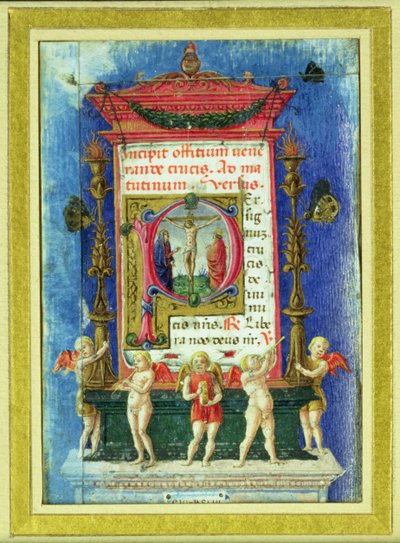 Incipit offitium vene
rande crucis. Ad ma
tutinum. Versus.
Per
sig
nuz
cru
cis
de
ini
mi
cis nr̃is. R̃ Libe
ra nos deus nr̃. V̓